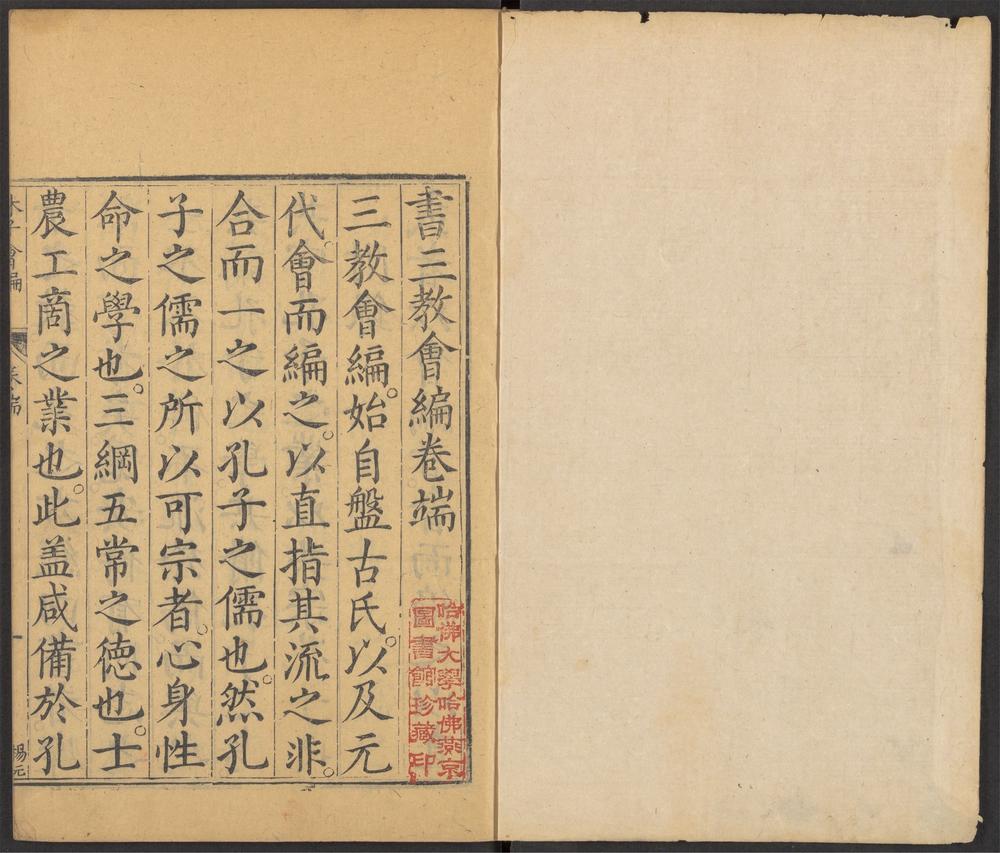 書三教會編卷端
哈佛大學哈佛燕京
圖書館珍藏印
三教會編。始自盤古氏。以及元
代。會而編之。以直指其流之非。
合而一之以孔子之儒也。然孔
子之儒之所以可宗者。心身性
命之學也。三綱五常之德也。士
農工商之業也。此盖咸備於孔
會編
楊元